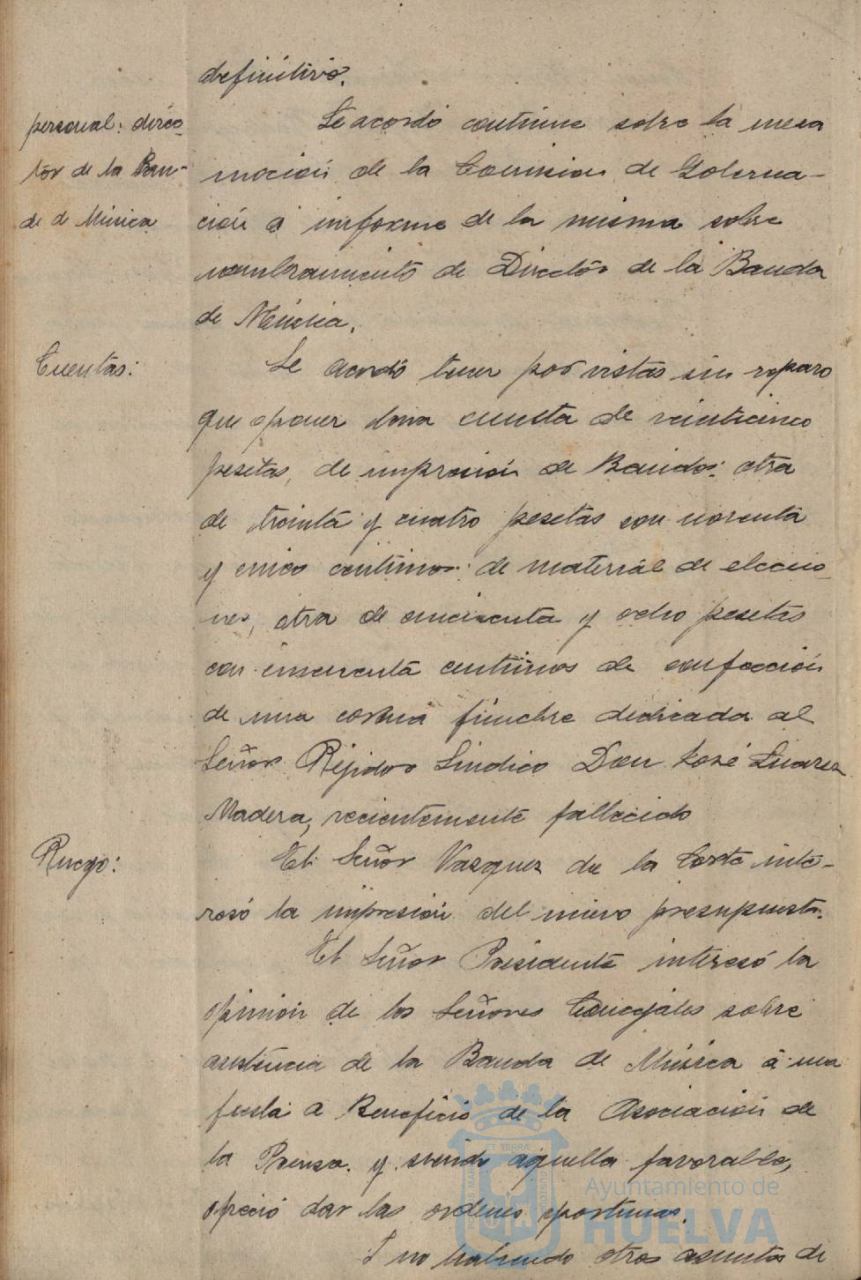 definitivo.
personal: direc-
tor de la Ban-
da de Música
Se acordó continue sobre la mesa
moción de la Comision de Goberna-
ción é informe de la misma sobre
nombramiento de Director de la Banda
de Música.
Cuentas:
Se acordó tener por vistas sin reparo
que oponer una cuenta de veinticinco
pesetas, de impresión de Bandos: otra
de treinta y cuatro pesetas con noventa
y cinco centimos: de material de eleccio-
nes, otra de cincuenta y ocho pesetas
con cincuenta centimos de confección
de una corona fúnebre dedicada al
Señor Rejidor Sindico Don José Suarez
Madera, recientemente fallecido
Ruego:
El Señor Vazquez de la Corte inte-
resó la impresión del nuevo presupuesto.
El Señor Presidente interesó la
opinión de los Señores Concejales sobre
asistencia de la Banda de Música á una
fiesta a Beneficio de la Asociacion de
la Prensa. y siendo aquella favorable,
ofreció dar las ordenes oportunas.
Y no habiendo otros asuntos de
Ayuntamiento de
HUELVA